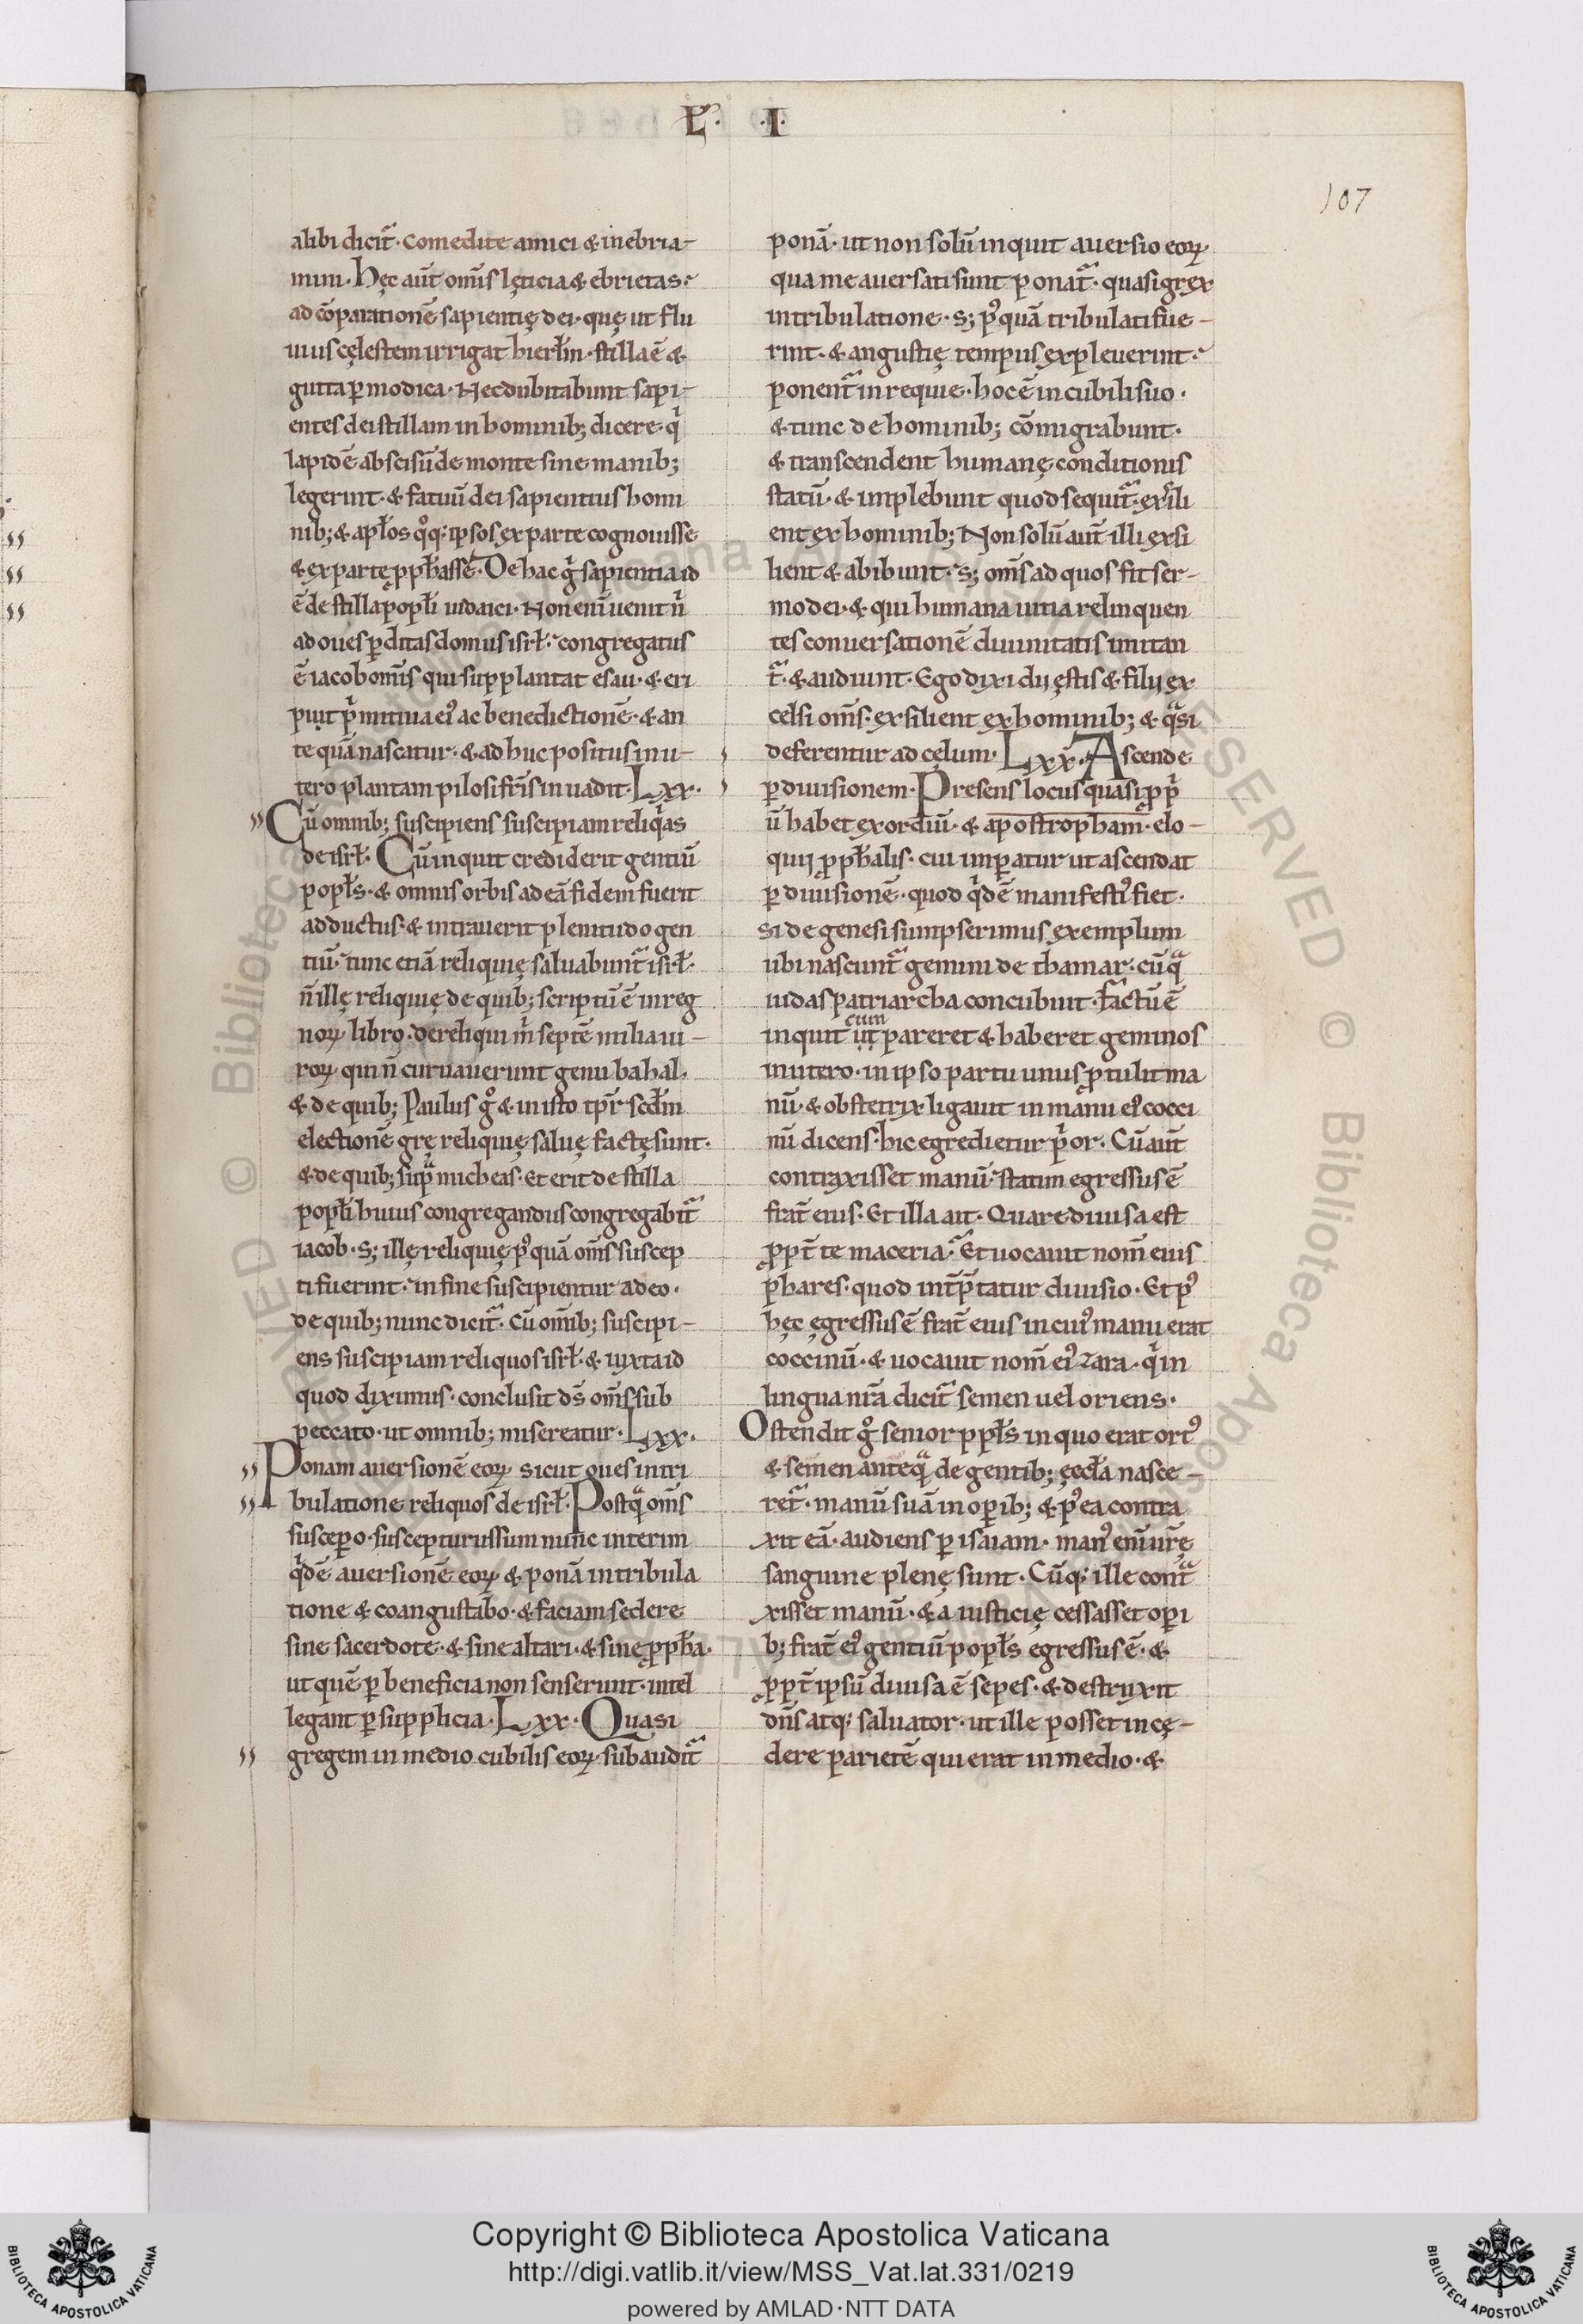 L. I.
107
alibi dicit᷒. Comedite amici & inebria-
mini. hęc aut̄ om̄is lęticia & ebrietas.
ad cōparationē sapientię dei. quę ut flu
uius cęlestem irrigat hierłm. stilla ē &
gutta ꝑmodica. Nec dubitabunt sapi-
entes dei stillam in hominib; dicere. qͥ
lapidē abscisū de monte sine manib;
legerint. & fatuū dei sapientius homi
nib; & apłos qͦq; ipsos ex parte cognouisse
& ex parte ꝓphasse. De hac gͥ sapientia id
ē de stilla popłi iudaici. Non enī uenit nͥ
ad oues ꝑditas domus isrł. congregatus
ē iacob om̄is qui supplantat esau. & eri
puit pͥmitiua eiꝰ ac benedictionē. & an
te quā nascatur. & adhuc positus in u-
tero plantam pilosi fr̄is inuadit. Lxx.
Cū omnib; suscipiens suscipiam reliqͥas
de isrł. Cū inquit crediderit gentiū
popłs. & omnis orbis ad eā fidem fuerit
adductus. & intrauerit plenitudo gen
tiū. tunc etiā reliquię saluabunt᷒ isrł.
n̄ illę reliquię de quib; scriptū ē in reg
noꝝ libro. dereliqui mͥ septē milia ui-
roꝝ qui n̄ curuauerunt genu bahal.
& de quib; Paulus gͦ & in isto tpr̄ scđm
electionē grę reliquię saluę factę sunt.
& de quib; supͣ micheas. Et erit de stilla
popłi huius congregandus congregabit᷒
iacob. S; illę reliquię pꝰquā om̄s suscep
ti fuerint. in fine suscipientur a deo.
de quib; nunc dicit᷒. Cū om̄ib; suscipi-
ens suscipiam reliquos isrł. & iuxta id
quod diximus. conclusit ds̄ om̄s sub
peccato. ut omnib; misereatur. Lxx.
Ponam auersionē eoꝝ sicut oues in tri
bulatione reliquos de isrł. Postqͣ om̄s
suscepero. suscepturus sum nunc interim
qͥdē auersionē eoꝝ & ponā in tribula
tione & coangustabo. & faciam sedere
sine sacerdote. & sine altari. & sine ꝓpħa.
ut quē ꝑ beneficia non senserunt. intel
legant ꝑ supplicia. Lxx. Quasi
gregem in medio cubilis eoꝝ. subaudit᷒
ponā. ut non solū inquit auersio eoꝝ
qua me auersati sunt ponat᷒. quasi grex
in tribulatione. S; pꝰquā tribulati fue-
rint. & angustię tempus expleuerint.
ponent᷒ in requie. hoc ē in cubili suo.
& tunc de hominib; cōmigrabunt.
& transcendent humanę conditionis
statū. & implebunt quod sequit᷒. exili
ent ex hominib; Non solū aut̄ illi exsi
lient & abibunt. S; om̄s ad quos fit ser-
mo dei. & qui humana uitia relinquen
tes conuersationē diuinitatis imitan
t᷒. & audiunt. Ego dixi dij ęstis & filij ex
celsi om̄s. exsilient ex hominib; & qͣsi
deferentur ad cęlum. Lxx. Ascende
ꝑ diuisionem. Presens locus quasi ꝓpͥ
ū habet exordiū. & apostropham. elo-
quij ꝓpħalis. cui imperatur ut ascendat
ꝑ diuisionē. quod qͥdē manifestiꝰ fiet.
si de genesi sumpserimus exemplum
ubi nascunt᷒ gemini de thamar. cū qͣ
iudas patriarcha concubuit. factū ē
inquit ut cum pareret & haberet geminos
in utero. in ipso partu unus ꝓtulit ma
nū. & obstetrix ligauit in manu eiꝰ cocci
nū dicens. hic egredietur pͥor. Cū aut̄
contraxisset manū. statim egressus ē
frat̄ eius. Et illa ait. Quare diuisa est
ꝓpt̄ te maceria. Et uocauit nom̄ eius
phares. quod int̄p̄tatur diuisio. Et pꝰ
hęc ęgressus ē frat̄ eius in cuiꝰ manu erat
coccinū. & uocauit nom̄ eiꝰ zara. qͥ in
lingua nr̄a dicit᷒ semen uel oriens.
Ostendit gͦ senior ppłs in quo erat ortꝰ
& semen anteqͣ de gentib; ęccła nasce-
ret᷒. manū suā in oꝑib; & pꝰea contra
xit eā. audiens ꝑ isaiam. manꝰ enī ur̄ę
sanguine plenę sunt. Cūq; ille contͣ
xisset manū. & a iusticię cessasset oꝑi
b; frat̄ eiꝰ gentiū popłs egressus ē. &
ꝓpt̄ ipsū diuisa ē sepes. & destruxit
dn̄s atq; saluator. ut ille posset incę-
dere parietē qui erat in medio. &
Copyright © Biblioteca Apostolica Vaticana
http://digi.vatlib.it/view/MSS_Vat.lat.331/0219
powered by AMLAD·NTT DATA
BIBLIOTECA APOSTOLICA VATICANA
BIBLIOTECA APOSTOLICA VATICANA